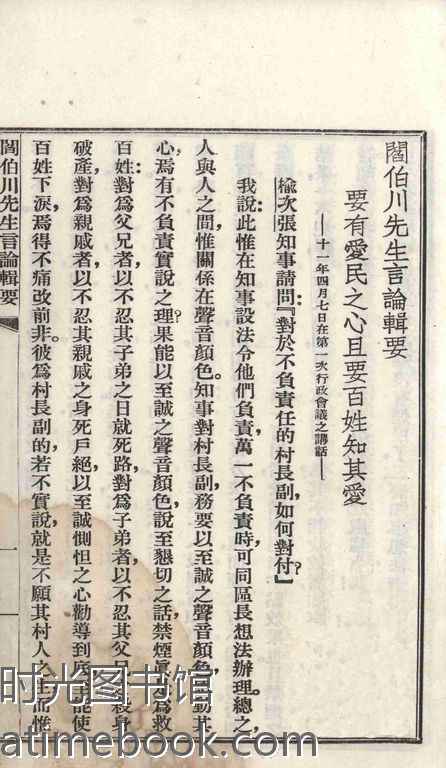 閻伯川先生言論輯要
要有愛民之心且要百姓知其愛
——十一年四月七日在第一次行政會議之講話——
榆次張知事請問:『對於不負責任的村長副,如何對付?』
我說:此惟在知事設法令他們負責,萬一不負責時,可同區長想法辦理。總之,
人與人之間,惟關係在聲音顏色。知事對村長副,務要以至誠之聲音顏色,動其
心,焉有不負責實說之理?果能以至誠之聲音顏色,說至懇切之話,禁煙眞是爲救
百姓:對爲父兄者,以不忍其子弟之日就死路,對爲子弟者,以不忍其父兄殺身
破產,對爲親戚者,以不忍其親戚之身死戶絕,以至誠惻怛之心,勸導到底,能使
百姓下淚,焉得不痛改前非。彼爲村長副的,若不實說,就是不願其村人之生,而惟
閻伯川先生言論輯要
一
时光图书馆
atimebook.com